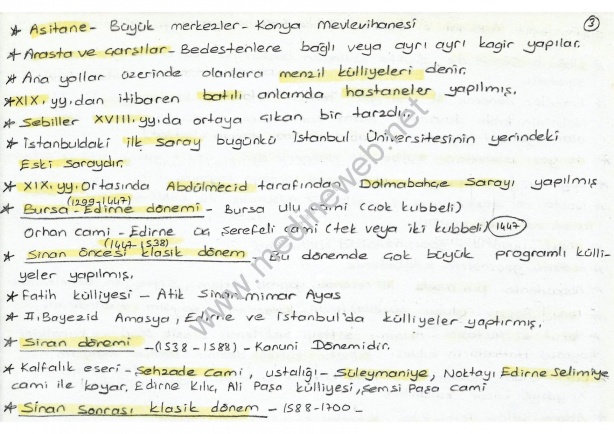 3
* Asitane - Büyük merkezler - Konya Mevlevihanesi
* Arasta ve çarşılar - Bedestenlere bağlı veya ayrı ayrı kagir yapılar.
* Ana yollar üzerinde olanlara menzil külliyeleri denir.
* XIX. yy.dan itibaren batılı anlamda hastaneler yapılmış.
* Sebiller XVIII. yy.da ortaya çıkan bir tarzdır.
* İstanbuldaki ilk saray bugünkü İstanbul Üniversitesinin yerindeki
Eski saraydır.
* XIX. yy. Ortasında Abdülmecid tarafından Dolmabahçe Sarayı yapılmış
(1299-1447)
* Bursa - Edirne dönemi - Bursa Ulu cami (çok kubbeli)
Orhan cami - Edirne üç Şerefeli cami (tek veya iki kubbeli) 1447
(1447-1538)
* Sinan Öncesi klasik dönem - Bu dönemde çok büyük programlı külli-
yeler yapılmış.
* Fatih külliyesi - Atik Sinan, mimar Ayas
* II. Bayezid Amasya, Edirne ve İstanbul'da külliyeler yaptırmış.
* Sinan dönemi - (1538 - 1588) - Kanuni Dönemidir.
* Kalfalık eseri - Şehzade cami, ustalığı - Süleymaniye, Noktayı Edirne Selimiye
cami ile koyar. Edirne Kılıç, Ali Paşa külliyesi, Şemsi Paşa cami
* Sinan Sonrası klasik dönem - 1588-1700 -
www.medineweb.net